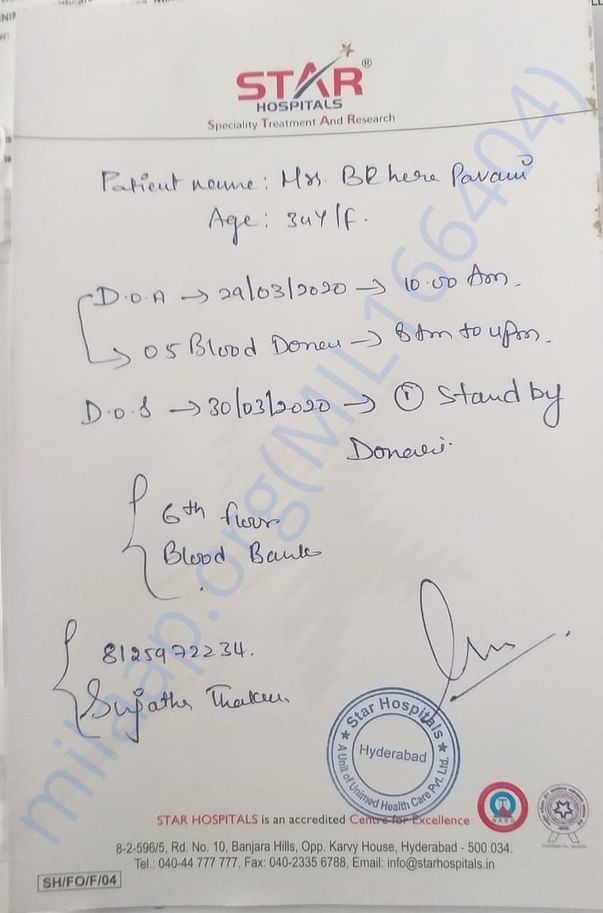 STAR ®
HOSPITALS
Speciality Treatment And Research
Patient name: Mrs. Pavani
Age: 34Y/F.
D.O.A → 29/03/2020 → 10.00 Am.
→ 05 Blood Doner → 8 Am to 4pm.
D.O.S → 30/03/2020 → ① Stand by
Doner.
6th floor
Blood Bank
8125972234.
Sujatha
Star Hospitals
Hyderabad
A Unit of Unimed Health Care Pvt. Ltd.
STAR HOSPITALS is an accredited Centre for Excellence
8-2-596/5, Rd. No. 10, Banjara Hills, Opp. Karvy House, Hyderabad - 500 034.
Tel.: 040-44 777 777, Fax: 040-2335 6788, Email: info@starhospitals.in
SH/FO/F/04
milaap.org(MIL166404)